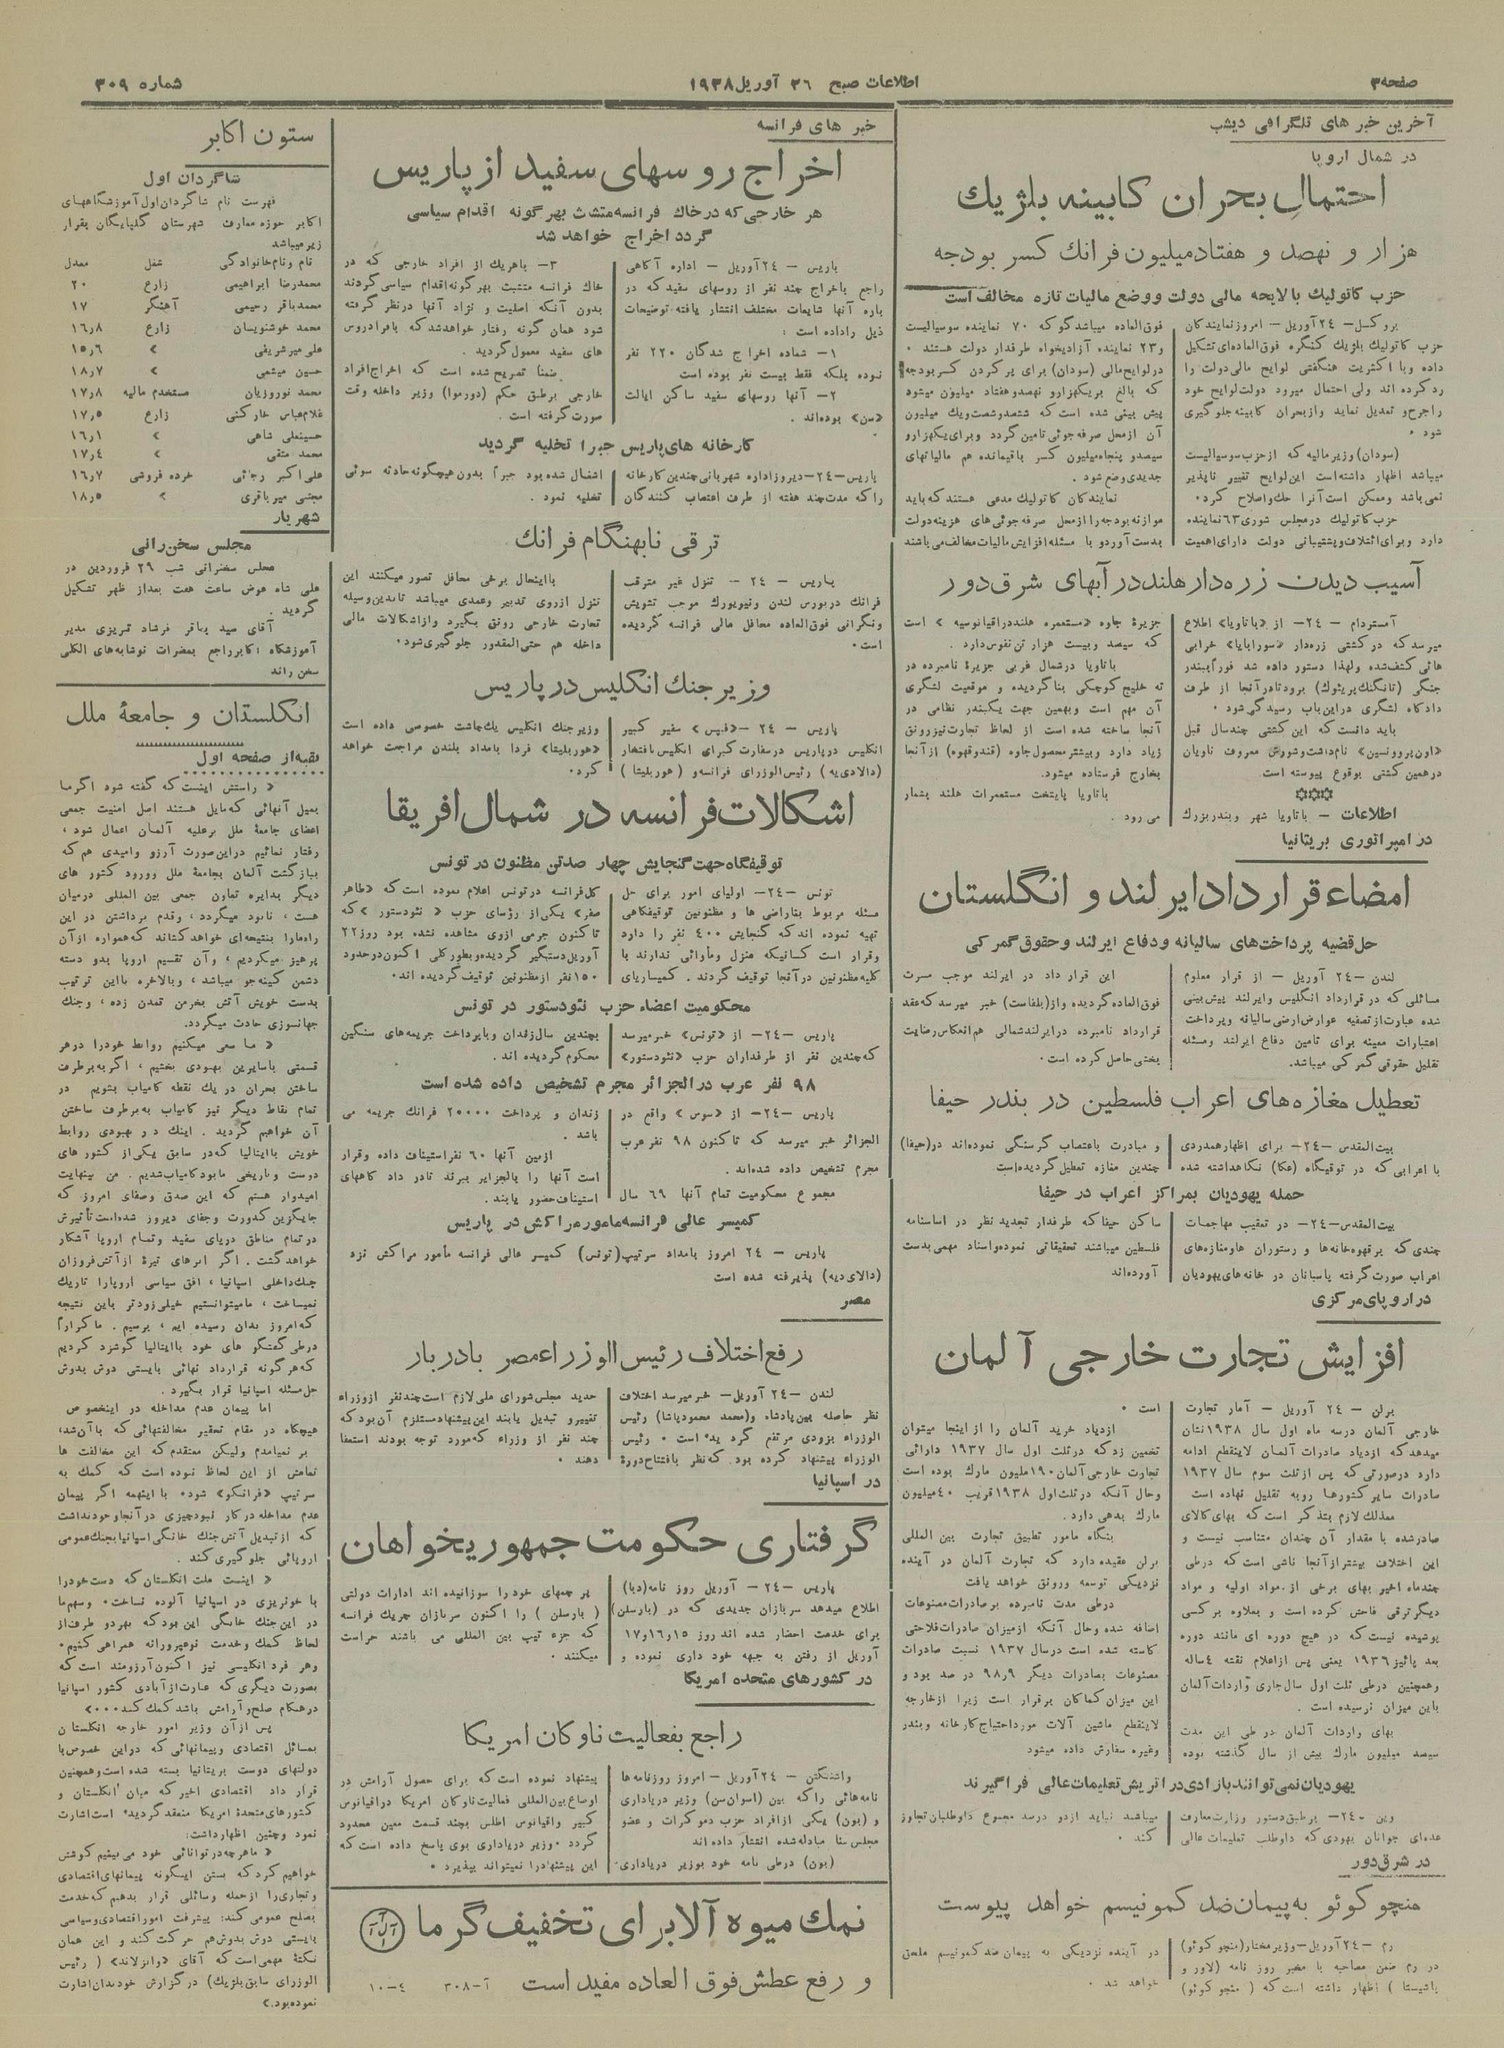 صفحه ۳
اطلاعات صبح ۲۶ آوریل ۱۹۳۸
شماره ۳۰۹
آخرین خبر های تلگرافی دیشب
در شمال اروپا
احتمال بحران کابینه بلژیك
هزار و نهصد و هفتاد میلیون فرانك کسر بودجه
حزب کاتولیك با لایحه مالی دولت و وضع مالیات تازه مخالف است
بروکسل – ۲۴ آوریل – امروز نمایندگان
حزب کاتولیك بلژیك کنگره فوق‌العاده‌ای تشکیل
داده و با اکثریت هنگفتی لوایح مالی دولت را
رد کرده اند ولی احتمال میرود دولت لوایح خود
را جرح و تعدیل نماید و از بحران کابینه جلوگیری
شود ۰
(سودان) وزیر مالیه که از حزب سوسیالیست
میباشد اظهار داشته است این لوایح تغییر ناپذیر
نمی باشد و ممکن است آنرا حك و اصلاح کرد۰
حزب کاتولیك در مجلس شوری ۶۳ نماینده
دارد و برای ائتلاف و پشتیبانی دولت دارای اهمیت
فوق‌العاده میباشد گو که ۷۰ نماینده سوسیالیست
و ۲۳ نماینده آزادیخواه طرفدار دولت هستند ۰
در لوایح مالی (سودان) برای پر کردن کسر بودجه
که بالغ بر یکهزار و نهصد و هفتاد میلیون میشود
پیش بینی شده است که ششصد و شصت و یك میلیون
آن از محل صرفه جوئی تامین گردد و برای یکهزار و
سیصد و پنجاه میلیون کسر باقیمانده هم مالیاتهای
جدیدی وضع شود .
نمایندگان کاتولیك مدعی هستند که باید
موازنه بودجه را از محل صرفه جوئی های هزینه دولت
بدست آورد و با مسئله افزایش مالیات مخالف می باشند
آسیب دیدن زره دار هلند در آبهای شرق دور
آمستردام – ۲۴– از «باتاویا» اطلاع
میرسد که در کشتی زره‌دار «سورابایا» خرابی
هائی کشف شده و لهذا دستور داده شد فوراً ببندر
جنگی (تانگنك پریئوك) برود تا در آنجا از طرف
دادگاه لشگری در این باب رسیدگی شود ۰
باید دانست که این کشتی چند سال قبل
«اون پروونسین» نام داشت و شورش معروف ناویان
در همین کشتی بوقوع پیوسته است
اطلاعات – باتاویا شهر و بندر بزرگ
جزیرهٔ جاوه «مستعمره هلند در اقیانوسیه » است
که سیصد و بیست هزار تن نفوس دارد .
باتاویا در شمال غربی جزیرهٔ نامبرده در
ته خلیج کوچکی بنا گردیده و موقعیت لشگری
آن مهم است و بهمین جهت یکبندر نظامی در
آنجا ساخته شده است از لحاظ تجارت نیز رونق
زیاد دارد و بیشتر محصول جاوه (قند و قهوه) از آنجا
بخارج فرستاده میشود.
باتاویا پایتخت مستعمرات هلند بشمار
می رود .
در امپراتوری بریتانیا
امضاء قرارداد ایرلند و انگلستان
حل قضیه پرداخت‌های سالیانه و دفاع ایرلند و حقوق گمرکی
لندن – ۲۴ آوریل – از قرار معلوم
مسائلی که در قرارداد انگلیس و ایرلند پیش بینی
شده عبارت از تصفیه عوارض ارضی سالیانه و پرداخت
اعتبارات معینه برای تامین دفاع ایرلند و مسئله
تقلیل حقوقی گمرکی میباشد.
این قرار داد در ایرلند موجب مسرت
فوق‌العاده گردیده و از (بلفاست) خبر میرسد که عقد
قرارداد نامبرده در ایرلند شمالی هم انعکاس رضایت
بخشی حاصل کرده است ۰
تعطیل مغازه‌های اعراب فلسطین در بندر حیفا
بیت‌المقدس –۲۴– برای اظهار همدردی
با اعرابی که در توقیفگاه (عکا) نگاهداشته شده
و مبادرت باعتصاب گرسنگی نموده‌اند در (حیفا)
چندین مغازه تعطیل گردیده است
حمله یهودیان بمراکز اعراب در حیفا
بیت‌المقدس –۲۴– در تعقیب مهاجمات
چندی که بر قهوه خانه‌ها و رستوران ها و مغازه‌های
اعراب صورت گرفته پاسبانان در خانه‌های یهودیان
ساکن حیفا که طرفدار تجدید نظر در اساسنامه
فلسطین میباشند تحقیقاتی نموده و اسناد مهمی بدست
آورده‌اند
در اروپای مرکزی
افزایش تجارت خارجی آلمان
برلن – ۲۴ آوریل – آمار تجارت
خارجی آلمان در سه ماه اول سال ۱۹۳۸ نشان
میدهد که ازدیاد صادرات آلمان لاینقطع ادامه
دارد در صورتی که پس از ثلث سوم سال ۱۹۳۷
صادرات سایر کشورها رو به تقلیل نهاده است
معذلك لازم بتذکر است که بهای کالای
صادر شده با مقدار آن چندان متناسب نیست و
این اختلاف بیشتر از آنجا ناشی است که در طی
چند ماه اخیر بهای برخی از مواد اولیه و مواد
دیگر ترقی فاحش کرده است و بعلاوه بر کسی
پوشیده نیست که در هیچ دوره ای مانند دوره
بعد پائیز ۱۹۳۶ یعنی پس از اعلام نقشه ٤ ساله
و همچنین در طی ثلث اول سال جاری واردات آلمان
باین میزان نرسیده است .
بهای واردات آلمان در طی این مدت
سیصد میلیون مارك بیش از سال گذشته بوده
است ۰
ازدیاد خرید آلمان را از اینجا میتوان
تخمین زد که در ثلث اول سال ۱۹۳۷ دارائی
تجارت خارجی آلمان ۱۹۰ میلیون مارك بوده است
و حال آنکه در ثلث اول ۱۹۳۸ قریب ۴۰ میلیون
مارك بدهی دارد.
بنگاه مامور تطبیق تجارت بین المللی
برلن عقیده دارد که تجارت آلمان در آینده
نزدیکی توسعه و رونق خواهد یافت
در طی مدت نامبرده بر صادرات مصنوعات
اضافه شده و حال آنکه از میزان صادرات فلاحتی
کاسته شده است در سال ۱۹۳۷ نسبت صادرات
مصنوعات بصادرات دیگر ۹۸٫۹ در صد بود و
این میزان کماکان برقرار است زیرا از خارجه
لاینقطع ماشین آلات مورد احتیاج کارخانه و بندر
و غیره سفارش داده میشود
یهودیان نمی توانند بازادی در اتریش تعلیمات عالی فرا گیرند
وین –۲۴– بر طبق دستور وزارت معارف
عده‌ای جوانان یهودی که داوطلب تعلیمات عالی
میباشند نباید از دو درسد مجموع داوطلبان تجاوز
کند ۰
در شرق دور
منچو کوئو به پیمان ضد کمونیسم خواهد پیوست
رم – ۲۴ آوریل – وزیر مختار (منچو کوئو)
در رم ضمن مصاحبه با مخبر روز نامه (لاور و
فاشیستا ) اظهار داشته است که ( منچو کوئو)
در آینده نزدیکی به پیمان ضد کمونیسم ملحق
خواهد شد .
خبر های فرانسه
اخراج روسهای سفید از پاریس
هر خارجی که در خاك فرانسه متشبث بهر گونه اقدام سیاسی
گردد اخراج خواهد شد
پاریس – ۲۴ آوریل – اداره آگاهی
راجع باخراج چند نفر از روسهای سفید که در
باره آنها شایعات مختلف انتشار یافته توضیحات
ذیل را داده است :
۱– شماره اخراج شدگان ۲۲۰ نفر
نبوده بلکه فقط بیست نفر بوده است
۲– آنها روسهای سفید ساکن ایالت
«سن» بوده‌اند .
۳– با هریك از افراد خارجی که در
خاك فرانسه متشبث بهر گونه اقدام سیاسی گردند
بدون آنکه اصلیت و نژاد آنها در نظر گرفته
شود همان گونه رفتار خواهد شد که با فراد روس
های سفید معمول گردید .
ضمناً تصریح شده است که اخراج افراد
خارجی بر طبق حکم (دورموا) وزیر داخله وقت
صورت گرفته است .
کارخانه های پاریس جبراً تخلیه گردید
پاریس –۲۴– دیروز اداره شهربانی چندین کارخانه
را که مدت چند هفته از طرف اعتصاب کنندگان
اشغال شده بود جبراً بدون هیچگونه حادثه سوئی
تخلیه نمود .
ترقی نابهنگام فرانك
پاریس – ۲۴ – تنزل غیر مترقب
فرانك در بورس لندن و نیویورك موجب تشویش
و نگرانی فوق‌العاده محافل مالی فرانسه گردیده
است ۰
با اینحال برخی محافل تصور میکنند این
تنزل از روی تدبیر و عمدی میباشد تا بدین وسیله
تجارت خارجی رونق بگیرد و از اشکالات مالی
داخله هم حتی‌المقدور جلوگیری شود۰
وزیر جنك انگلیس در پاریس
پاریس – ۲۴ –«فیس» سفیر کبیر
انگلیس در پاریس در سفارت کبرای انگلیس بافتخار
(دالادیه) رئیس الوزرای فرانسه و ( هوربلیشا )
وزیر جنك انگلیس یك چاشت خصوصی داده است
«هوربلیشا» فردا بامداد بلندن مراجعت خواهد
کرد۰
اشکالات فرانسه در شمال افریقا
توقیفگاه جهت گنجایش چهار صد تن مظنون در تونس
تونس –۲۴– اولیای امور برای حل
مسئله مربوط بناراضی ها و مظنونین توقیفگاهی
تهیه نموده اند که گنجایش ۴۰۰ نفر را دارد
و قرار است کسانیکه منزل و مأوائی ندارند با
کلیه مظنونین در آنجا توقیف گردند . کمیساریای
کل فرانسه در تونس اعلام نموده است که «طاهر
صفر» یکی از رؤسای حزب « نئودستور » که
تا کنون جرمی ازوی مشاهده نشده بود روز ۲۲
آوریل دستگیر گردیده و بطور کلی اکنون در حدود
۱۵۰ نفر از مظنونین توقیف گردیده اند۰
محکومیت اعضاء حزب نئودستور در تونس
پاریس –۲۴– از «تونس» خبر میرسد
که چندین نفر از طرفداران حزب «نئودستور»
بچندین سال زندان و با پرداخت جریمه‌های سنگین
محکوم گردیده اند .
۹۸ نفر عرب در الجزائر مجرم تشخیص داده شده است
پاریس –۲۴– از «سوس» واقع در
الجزائر خبر میرسد که تاکنون ۹۸ نفر عرب
مجرم تشخیص داده شده‌اند.
مجموع محکومیت تمام آنها ۶۹ سال
زندان و پرداخت ۲۰۰۰۰ فرانك جریمه می
باشد .
از بین آنها ۶۰ نفر استیناف داده و قرار
است آنها را بالجزایر ببرند تا در داد گاههای
استیناف حضور یابند .
کمیسر عالی فرانسه مامور مراکش در پاریس
پاریس – ۲۴ امروز بامداد سرتیپ (نوگس) کمیسر عالی فرانسه مأمور مراکش نزد
(دالادیه) پذیرفته شده است
مصر
رفع اختلاف رئیس الوزراء مصر با دربار
لندن –۲۴ آوریل– خبر میرسد اختلاف
نظر حاصله بین پادشاه و (محمد محمود پاشا) رئیس
الوزراء بزودی مرتفع گردیده است ۰ رئیس
الوزراء پیشنهاد کرده بود که نظر بافتتاح دورهٔ
جدید مجلس شورای ملی لازم است چند نفر از وزراء
تغییر و تبدیل یابند این پیشنهاد مستلزم آن بود که
چند نفر از وزراء که مورد توجه بودند استعفا
دهند ۰
در اسپانیا
گرفتاری حکومت جمهوریخواهان
پاریس –۲۴– آوریل روز نامه (دبا)
اطلاع میدهد سربازان جدیدی که در (بارسلن)
برای خدمت احضار شده اند روز ۱۵ و۱۶ و۱۷
آوریل از رفتن به جبهه خود داری نموده و
پرچمهای خود را سوزانیده اند ادارات دولتی
( بارسلن ) را اکنون سربازان چریك فرانسه
که جزء تیپ بین المللی می باشند حراست
میکنند .
در کشورهای متحده امریکا
راجع بفعالیت ناوگان امریکا
واشنگتن – ۲۴ آوریل – امروز روزنامه ها
نامه هائی را که بین (اسوان‌سن) وزیر دریاداری
و (بون) یکی از افراد حزب دموکرات و عضو
مجلس سنا مبادله شده انتشار داده اند
(بون) در طی نامه خود بوزیر دریاداری
پیشنهاد نموده است که برای حصول آرامش در
اوضاع بین‌المللی فعالیت ناوگان امریکا در اقیانوس
کبیر و اقیانوس اطلس بچند قسمت معین محدود
گردد ۰ وزیر دریاداری بوی پاسخ داده است که
این پیشنهاد را نمیتواند بپذیرد ۰
نمك میوه آلا برای تخفیف گرما
و رفع عطش فوق العاده مفید است
آ–۳۰۸
۴–۱۰
ستون اکابر
شاگردان اول
فهرست نام شاگردان اول آموزشگاههای
اکابر حوزه معارف شهرستان گلپایگان بقرار
زیر میباشد
نام و نام خانوادگی شغل معدل
محمد رضا ابراهیمی زارع ۲۰
محمد باقر رحیمی آهنگر ۱۷
محمد خوشنویسان زارع ۱۶٫۸
علی میر شریفی » ۱۵٫۶
حسین میثمی » ۱۸٫۷
محمد نوروزیان مستخدم مالیه ۱۷٫۸
غلامعباس خارکنی زارع ۱۷٫۵
حسینعلی شاهی » ۱۶٫۱
محمد متقی » ۱۷٫۴
علی اکبر رجائی خرده فروشی ۱۶٫۷
مجتبی میر باقری » ۱۸٫۵
شهریار
مجلس سخن‌رانی
مجلس سخنرانی شب ۲۹ فروردین در
علی شاه عوض ساعت هفت بعد از ظهر تشکیل
گردید .
آقای سید باقر فرشاد تبریزی مدیر
آموزشگاه اکابر راجع بمضرات نوشابه‌های الکلی
سخن راند
انگلستان و جامعهٔ ملل
بقیه از صفحه اول
« راستش اینست که گفته شود اگر ما
بمیل آنهائی که مایل هستند اصل امنیت جمعی
اعضای جامعهٔ ملل بر علیه آلمان اعمال شود ،
رفتار نمائیم در این صورت آرزو و امیدی هم که
ببازگشت آلمان بجامعهٔ ملل و ورود کشور های
دیگر بدایره تعاون جمعی بین المللی در میان
هست ، نابود میگردد ، و قدم برداشتن در این
راه ما را بنتیجه‌ای خواهد کشاند که همواره از آن
پرهیز میکردیم ، و آن تقسیم اروپا بدو دسته
دشمن کینه جو میباشد ، و بالاخره با این ترتیب
بدست خویش آتش بخرمن تمدن زده ، و جنك
جهانسوزی حادث میگردد.
« ما سعی میکنیم روابط خود را در هر
قسمتی با سایرین بهبودی بخشیم ، اگر به برطرف
ساختن بحران در یك نقطه کامیاب بشویم در
تمام نقاط دیگر نیز کامیاب به برطرف ساختن
آن خواهیم گردید . اینك در بهبودی روابط
خویش با ایتالیا که در سابق یکی از کشور های
دوست و تاریخی ما بود کامیاب شدیم . من بینهایت
امیدوار هستم که این صدق و صفای امروز که
جایگزین کدورت و جفای دیروز شده است تأثیرش
در تمام مناطق دریای سفید و تمام اروپا آشکار
خواهد گشت . اگر ابر های تیرهٔ از آتش فروزان
جنك داخلی اسپانیا ، افق سیاسی اروپا را تاریك
نمیساخت ، ما میتوانستیم خیلی زودتر باین نتیجه
که امروز بدان رسیده ایم ، برسیم . ما کراراً
در طی گفتگو های خود با ایتالیا گوشزد کردیم
که هر گونه قرارداد نهائی بایستی دوش بدوش
حل مسئله اسپانیا قرار بگیرد .
اما پیمان عدم مداخله در اینخصوص
هیچگاه در مقام تحقیر مخالفتهائی که با آن شد،
بر نمیامدم ولیکن معتقدم که این مخالفت ها
تمامش از این لحاظ نبوده است که کمك به
سرتیپ «فرانکو» شود۰ با اینهمه اگر پیمان
عدم مداخله در کار نبود چیزی در آنجا وجود نداشت
که از تبدیل آتش جنك خانگی اسپانیا بجنك عمومی
اروپائی جلوگیری کند .
« اینست ملت انگلستان که دست خود را
با خونریزی در اسپانیا آلوده نساخت ۰ و سهم ما
در این جنك خانگی این بود که بهر دو طرف از
لحاظ کمك و خدمت نوعپرورانه همراهی کنیم۰
و هر فرد انگلیسی نیز اکنون آرزومند است که
بصورت دیگری که عبارت از آبادی کشور اسپانیا
در هنگام صلح و آرامش باشد کمك کند ۰۰۰»
پس از آن وزیر امور خارجه انگلستان
بمسائل اقتصادی و پیمانهائی که در این خصوص با
دولتهای دوست بریتانیا بسته شده است و همچنین
قرار داد اقتصادی اخیر که میان انگلستان و
کشورهای متحدهٔ امریکا منعقد گردیده است اشارت
نمود و چنین اظهار داشت:
« ما هر چه در توانائی خود می بینیم کوشش
خواهیم کرد که بستن اینگونه پیمانهای اقتصادی
و تجاری را از جمله وسائلی قرار بدهیم که خدمت
بصلح عمومی کند: پیشرفت امور اقتصادی و سیاسی
بایستی دوش بدوش هم حرکت کند و این همان
نکتهٔ مهمی است که آقای «وانزلاند» ( رئیس
الوزرای سابق بلژیك) در گزارش خود بدان اشارت
نموده بود.»